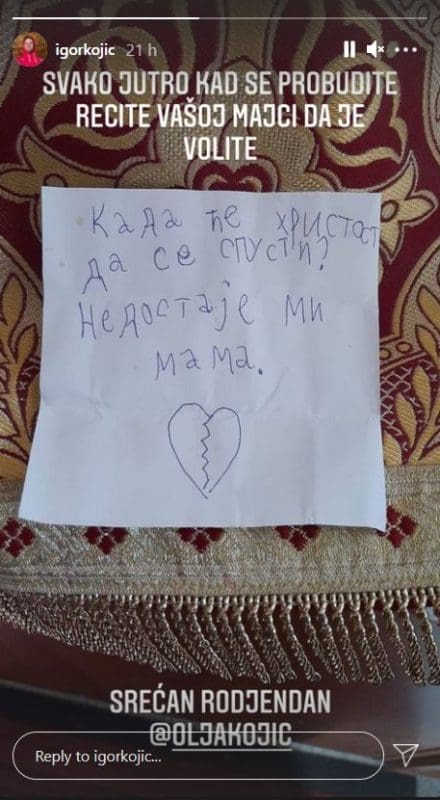 igorkojic 21 h
SVAKO JUTRO KAD SE PROBUDITE
RECITE VAŠOJ MAJCI DA JE
VOLITE
Када ће христост
да се спусти?
Недостаје ми
мама.
SREĆAN RODJENDAN
@OLJAKOJIC
Reply to igorkojic...